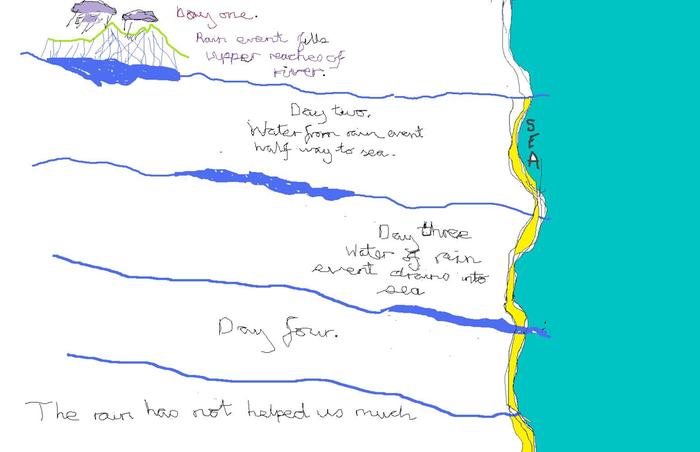 Day one.
Rain event fills
upper reaches of
river.
Day two.
Water from rain event
half way to sea.
SEA
Day three
Water of rain
event drains into
sea
Day four.
The rain has not helped us much